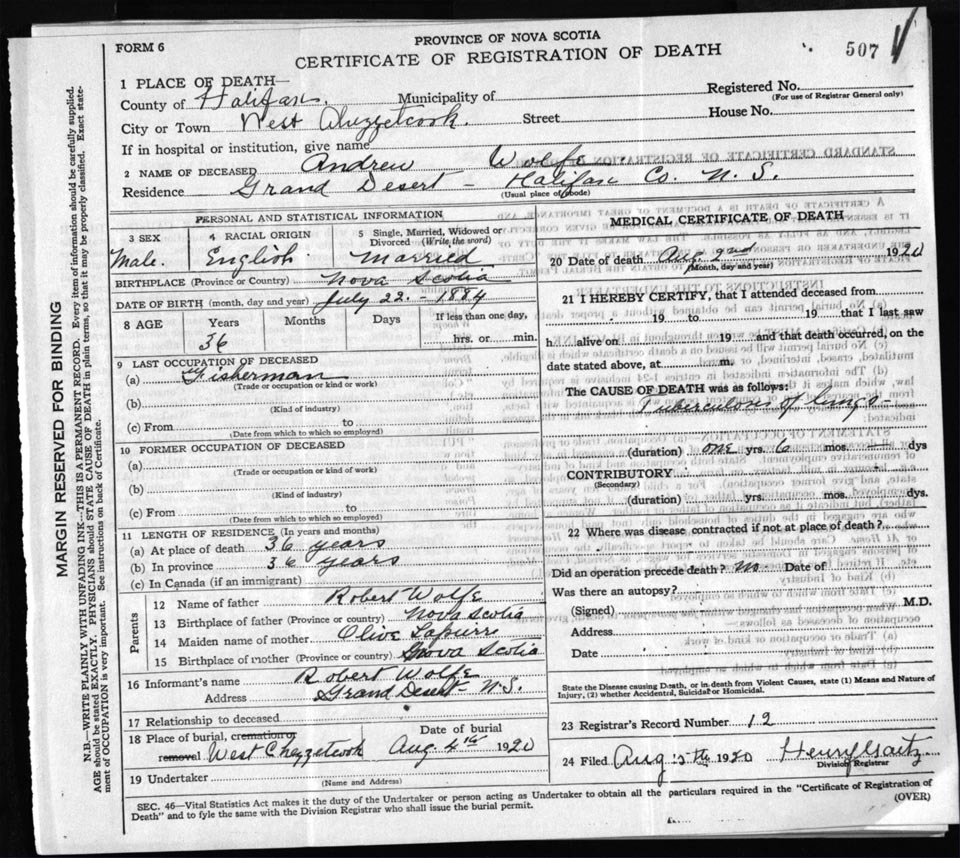 PROVINCE OF NOVA SCOTIA
FORM 6
CERTIFICATE OF REGISTRATION OF DEATH
507
1 PLACE OF DEATH—
County of Halifax. Municipality of
Registered No.
(For use of Registrar General only)
City or Town West Chezzetcook. Street House No.
If in hospital or institution, give name
2 NAME OF DECEASED Andrew Wolfe
Residence Grand Desert - Halifax Co. N. S.
(Usual place of abode)
PERSONAL AND STATISTICAL INFORMATION
3 SEX 4 RACIAL ORIGIN 5 Single, Married, Widowed or Divorced (Write the word)
Male. English. Married
BIRTHPLACE (Province or Country) Nova Scotia
DATE OF BIRTH (month, day and year) July 22. - 1884
8 AGE Years Months Days If less than one day,
36 hrs. or min.
9 LAST OCCUPATION OF DECEASED
(a) Fisherman
(Trade or occupation or kind or work)
(b)
(Kind of industry)
(c) From to
(Date from which to which so employed)
10 FORMER OCCUPATION OF DECEASED
(a)
(Trade or occupation or kind of work)
(b)
(Kind of industry)
(c) From to
(Date from which to which so employed)
11 LENGTH OF RESIDENCE (In years and months)
(a) At place of death 36 years
(b) In province 36 years
(c) In Canada (if an immigrant)
Parents
12 Name of father Robert Wolfe
13 Birthplace of father (Province or country) Nova Scotia
14 Maiden name of mother Olive
15 Birthplace of mother (Province or country) Nova Scotia
16 Informant's name Robert Wolfe
Address Grand Desert - N.S.
17 Relationship to deceased
18 Place of burial, cremation or Date of burial
removal West Chezzetcook Aug. 4th 1920
19 Undertaker
(Name and Address)
MEDICAL CERTIFICATE OF DEATH
20 Date of death Aug 2nd 1920
(Month, day and year)
21 I HEREBY CERTIFY, that I attended deceased from
19 to 19 that I last saw
h alive on 19 and that death occurred, on the
date stated above, at m.
The CAUSE OF DEATH was as follows:
Tuberculosis of lungs-
(duration) one yrs. 6 mos. dys
CONTRIBUTORY
(Secondary)
(duration) yrs. mos. dys.
22 Where was disease contracted if not at place of death?
Did an operation precede death? No. Date of
Was there an autopsy?
(Signed) M.D.
Address
Date
State the Disease causing Death, or in death from Violent Causes, state (1) Means and Nature of
Injury, (2) whether Accidental, Suicidal or Homicidal.
23 Registrar's Record Number 12
24 Filed Aug 5th 1920 Henry
Division Registrar
SEC. 46—Vital Statistics Act makes it the duty of the Undertaker or person acting as Undertaker to obtain all the particulars required in the "Certificate of Registration of
Death" and to fyle the same with the Division Registrar who shall issue the burial permit. (OVER)
MARGIN RESERVED FOR BINDING
N.B.—WRITE PLAINLY WITH UNFADING INK—THIS IS A PERMANENT RECORD. Every item of information should be carefully supplied.
AGE should be stated EXACTLY. PHYSICIANS should STATE CAUSE OF DEATH in plain terms, so that it may be properly classified. Exact state-
ment of OCCUPATION is very important. See instructions on back of Certificate.